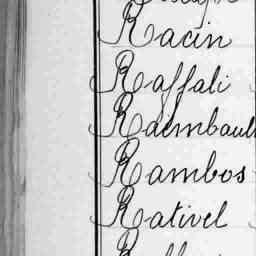 Racin
Raffali
Raembault
Rambos
Rativel